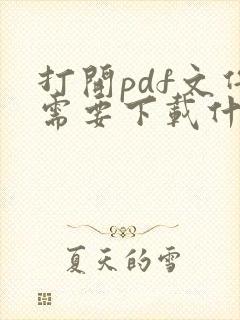 打開pdf文件
需要下載什
夏天的雪